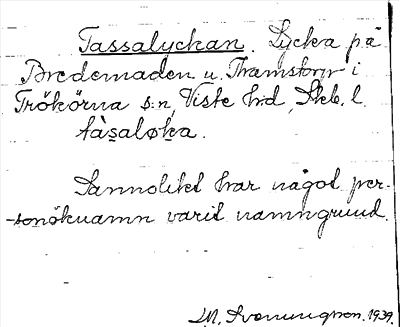 Tassalyckan. Lycka på
Bredemaden u. Thamstorp i
Trökörna s:n, Viste h:d, Skb. l.
tàsaløka.
Sannolikt har något per-
-sonöknamn varit namngrund.
M. Svenungson. 1939.